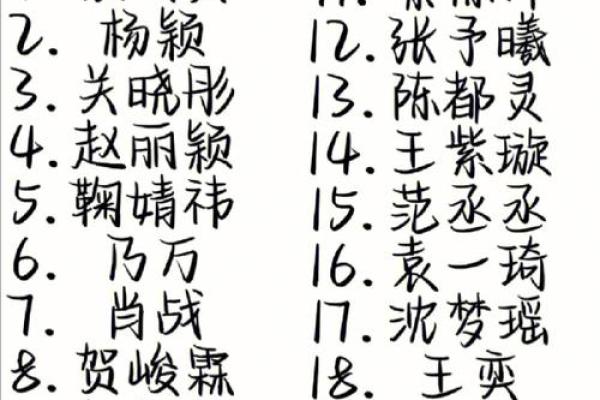 2. 杨颖
3. 关晓彤
4. 赵丽颖
5. 鞠婧祎
6. 乃万
7. 肖战
8. 贺峻霖
12. 张予曦
13. 陈都灵
14. 王紫璇
15. 范丞丞
16. 袁一琦
17. 沈梦瑶
18. 王奕